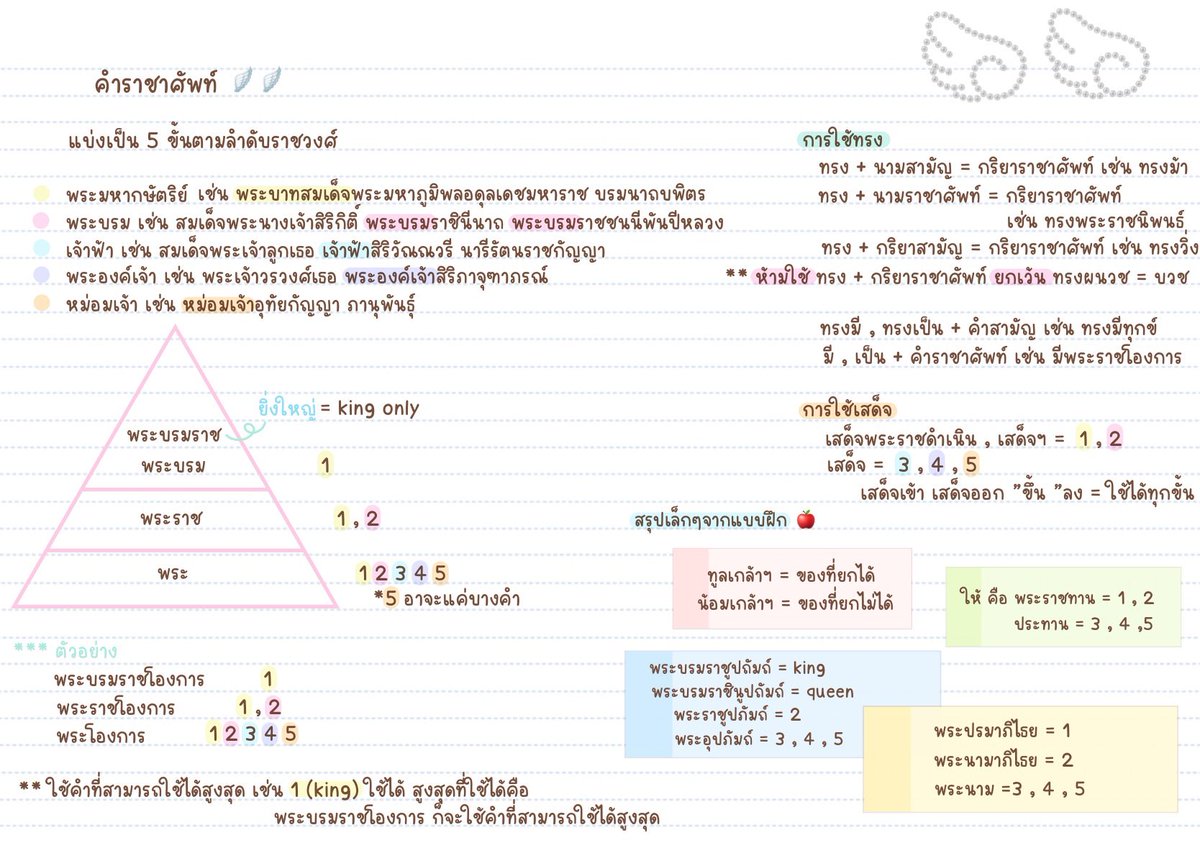 คำราชาศัพท์
แบ่งเป็น 5 ขั้นตามลำดับราชวงศ์
พระมหากษัตริย์ เช่น พระบาทสมเด็จพระมหาภูมิพลอดุลเดชมหาราช บรมนาถบพิตร
พระบรม เช่น สมเด็จพระนางเจ้าสิริกิติ์ พระบรมราชินีนาถ พระบรมราชชนนีพันปีหลวง
เจ้าฟ้า เช่น สมเด็จพระเจ้าลูกเธอ เจ้าฟ้าสิริวัณณวรี นารีรัตนราชกัญญา
พระองค์เจ้า เช่น พระเจ้าวรวงศ์เธอ พระองค์เจ้าสิริภาจุฑาภรณ์
หม่อมเจ้า เช่น หม่อมเจ้าอุทัยกัญญา ภานุพันธุ์
ยิ่งใหญ่ = king only
พระบรมราช
พระบรม 1
พระราช 1 , 2
พระ 1 2 3 4 5
*5 อาจะแค่บางคำ
*** ตัวอย่าง
พระบรมราชโองการ 1
พระราชโองการ 1 , 2
พระโองการ 1 2 3 4 5
** ใช้คำที่สามารถใช้ได้สูงสุด เช่น 1 (king) ใช้ได้ สูงสุดที่ใช้ได้คือ
พระบรมราชโองการ ก็จะใช้คำที่สามารถใช้ได้สูงสุด
การใช้ทรง
ทรง + นามสามัญ = กริยาราชาศัพท์ เช่น ทรงม้า
ทรง + นามราชาศัพท์ = กริยาราชาศัพท์
เช่น ทรงพระราชนิพนธ์
ทรง + กริยาสามัญ = กริยาราชาศัพท์ เช่น ทรงวิ่ง
** ห้ามใช้ ทรง + กริยาราชาศัพท์ ยกเว้น ทรงผนวช = บวช
ทรงมี , ทรงเป็น + คำสามัญ เช่น ทรงมีทุกข์
มี , เป็น + คำราชาศัพท์ เช่น มีพระราชโองการ
การใช้เสด็จ
เสด็จพระราชดำเนิน , เสด็จฯ = 1 , 2
เสด็จ = 3 , 4 , 5
เสด็จเข้า เสด็จออก "ขึ้น "ลง = ใช้ได้ทุกขั้น
สรุปเล็กๆจากแบบฝึก
ทูลเกล้าฯ = ของที่ยกได้
น้อมเกล้าฯ = ของที่ยกไม่ได้
ให้ คือ พระราชทาน = 1 , 2
ประทาน = 3 , 4 ,5
พระบรมราชูปถัมถ์ = king
พระบรมราชินูปถัมถ์ = queen
พระราชูปภัมถ์ = 2
พระอุปภัมถ์ = 3 , 4 , 5
พระปรมาภิไธย = 1
พระนามาภิไธย = 2
พระนาม =3 , 4 , 5